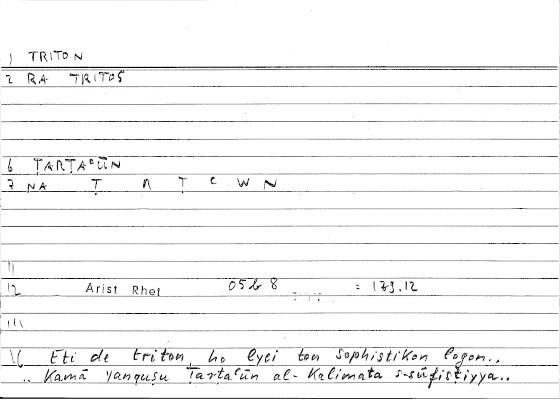 1 TRITON
2 RA TRITOS
6 ṬARṬAʿŪN
7 NA Ṭ R Ṭ ʿ W N
11
12 Arist Rhet 05b 8 : 173.12
111
16 Eti de triton ho lyei ton sophistikon logon..
.. Kamā yanquṣu Ṭarṭaʿūn al-Kalimata s-sūfisṭiyya..